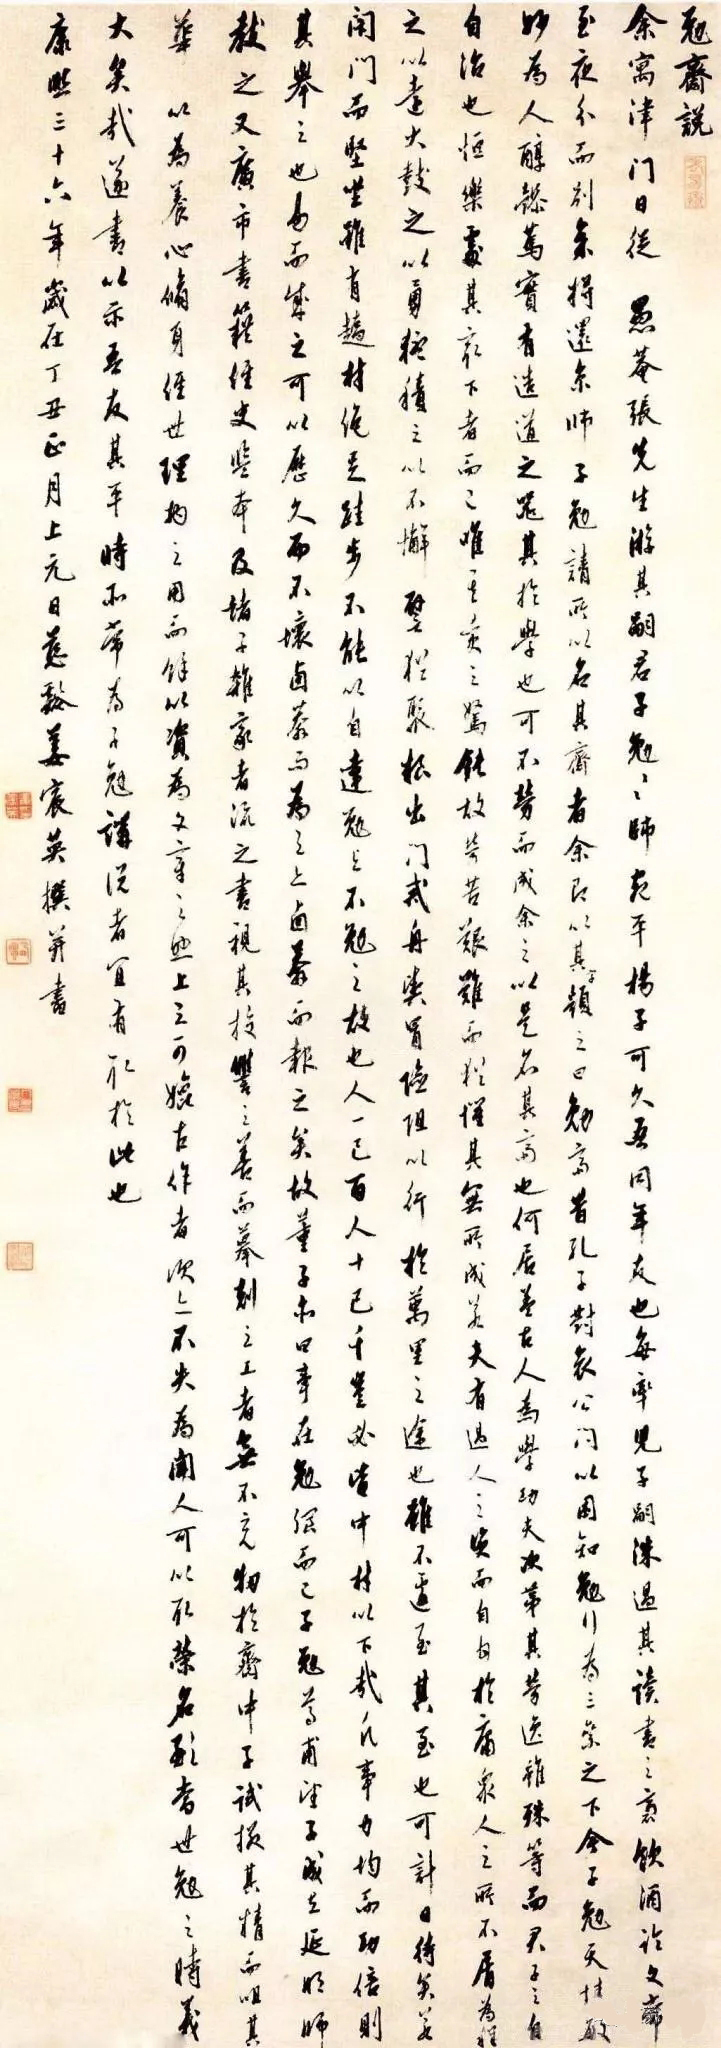 勉齋說
余寓津門日從 愚菴張先生游其嗣君子勉之師宛平楊子可久吾同年友也每率兒子嗣洙過其讀書之裏飲酒論文常
至夜分而別余將還京師子勉請所以名其齋者余即以其字顏之曰勉齋昔孔子對哀公問以困知勉行為三等之下今子勉天性敏
妙為人醇謹篤實有造道之器其於學也可不勞而成余之以是名其齋也何居蓋古人為學功夫次第其勞逸雖殊等而君子之自
自治也恒樂處其最下者而已唯其資之駑鈍故辛苦艱難而猶懼其無所成若夫有過人之資而自力於庸衆人之所不屑為程
之以遠大鼓之以勇猛積之以不懈譬猶聚糧出門戒舟輿冒險阻以行於萬里之途也雖不遽至其至也可計日待矣若
閉門而堅坐雖有趫材絕足跬步不能以自達勉與不勉之故也人一己百人十己千豈必皆中材以下哉凡事力均而功倍則
其舉之也易而成之可以歷久而不壞鹵莽而為之亦鹵莽而報之矣故董子亦曰事在勉強而已子勉尊甫望子成立延明師
教之又廣市書籍經史監本及諸子雜家者流之書視其校讐之善而摹刻之工者無不充牣於齋中子試擷其精而咀其
華 以為養心脩身經世理物之用而餘以資為文章之助上之可媲古作者次之亦不失為聞人可以取榮名顯當世勉之時義
大矣哉遂書以示吾友其平時所常為子勉講說者宜有取於此也
康熙三十六年歲在丁丑正月上元日慈谿姜宸英撰并書